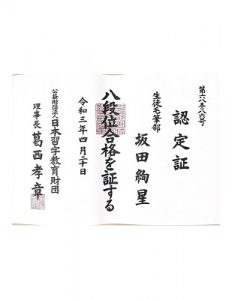 認定証
生徒毛筆部
坂田絢星
八段位合格を証する
令和三年四月二十日
公益財団法人日本習字教育財団
理事長 葛西孝章